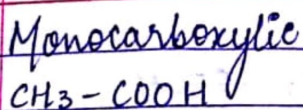 Monocarboxylic
CH3 - COOH